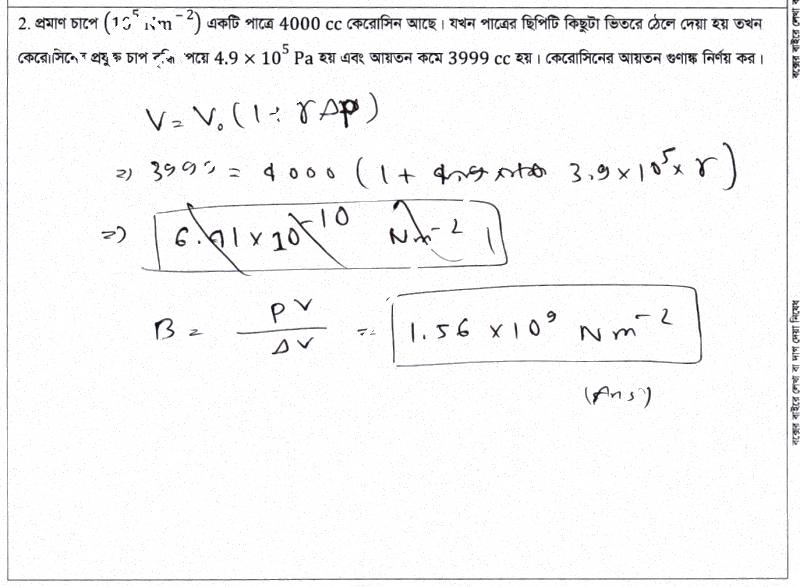 2. প্রমাণ চাপে (10⁵ Nm⁻²) একটি পাত্রে 4000 cc কেরোসিন আছে। যখন পাত্রের ছিপিটি কিছুটা ভিতরে ঠেলে দেয়া হয় তখন
কেরোসিনের প্রযুক্ত চাপ বৃদ্ধি পেয়ে 4.9 × 10⁵ Pa হয় এবং আয়তন কমে 3999 cc হয়। কেরোসিনের আয়তন গুণাঙ্ক নির্ণয় কর।
V = V₀ (1 + γΔp)
⇒ 3999 = 4000 (1 + 3.9 × 10⁵ × γ)
⇒ 6.41 × 10⁻¹⁰ Nm⁻²
B = PV/ΔV = 1.56 × 10⁹ Nm⁻²
(Ans)
বক্সের বাইরে লেখা বা দাগ দেয়া নিষেধ